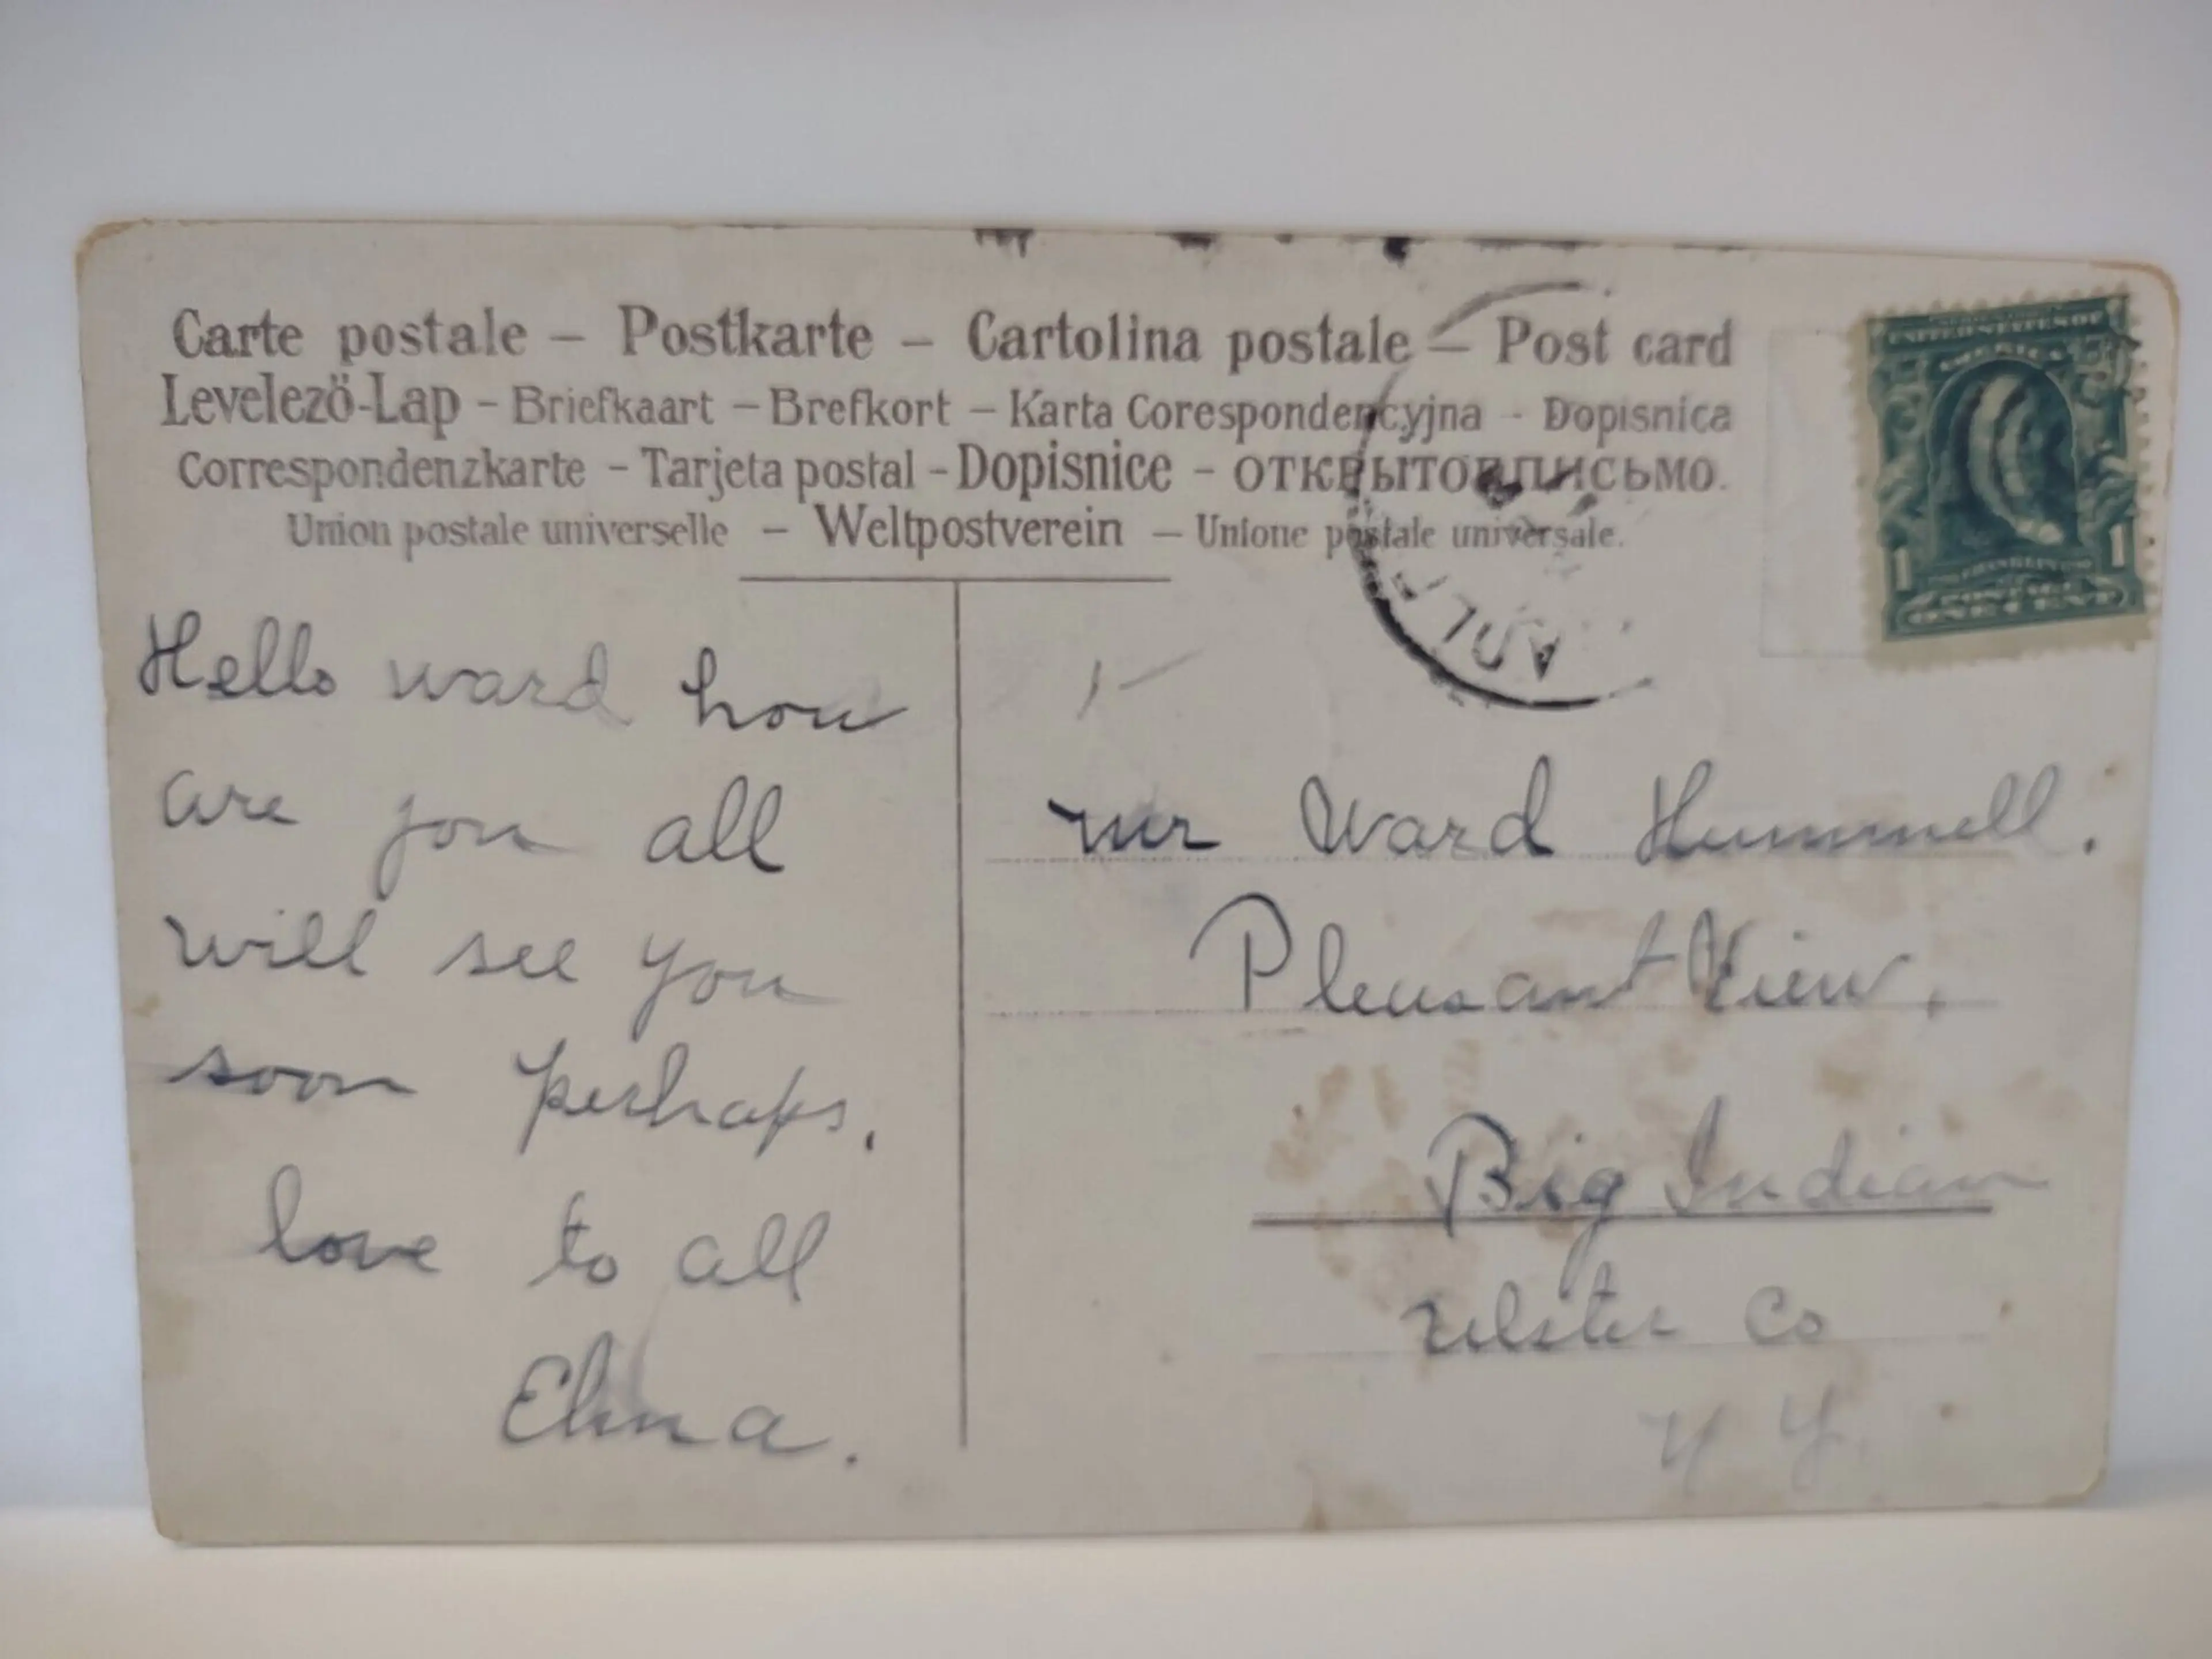 Carte postale – Postkarte – Cartolina postale – Post card
Levelező-Lap – Briefkaart – Brefkort – Karta Corespondencyjna – Dopisnica
Correspondenzkarte – Tarjeta postal – Dopisnice – ОТКРЫТОЕ ПИСЬМО.
Union postale universelle – Weltpostverein – Unione postale universale.
UNITED STATES OF
AMERICA
1 1
POSTAGE
ONE CENT
Hello ward how
are you all
will see you
soon perhaps.
love to all
Elma.
mr Ward Hummell.
Pleasant View,
Big Indian
Ulster Co
N Y.